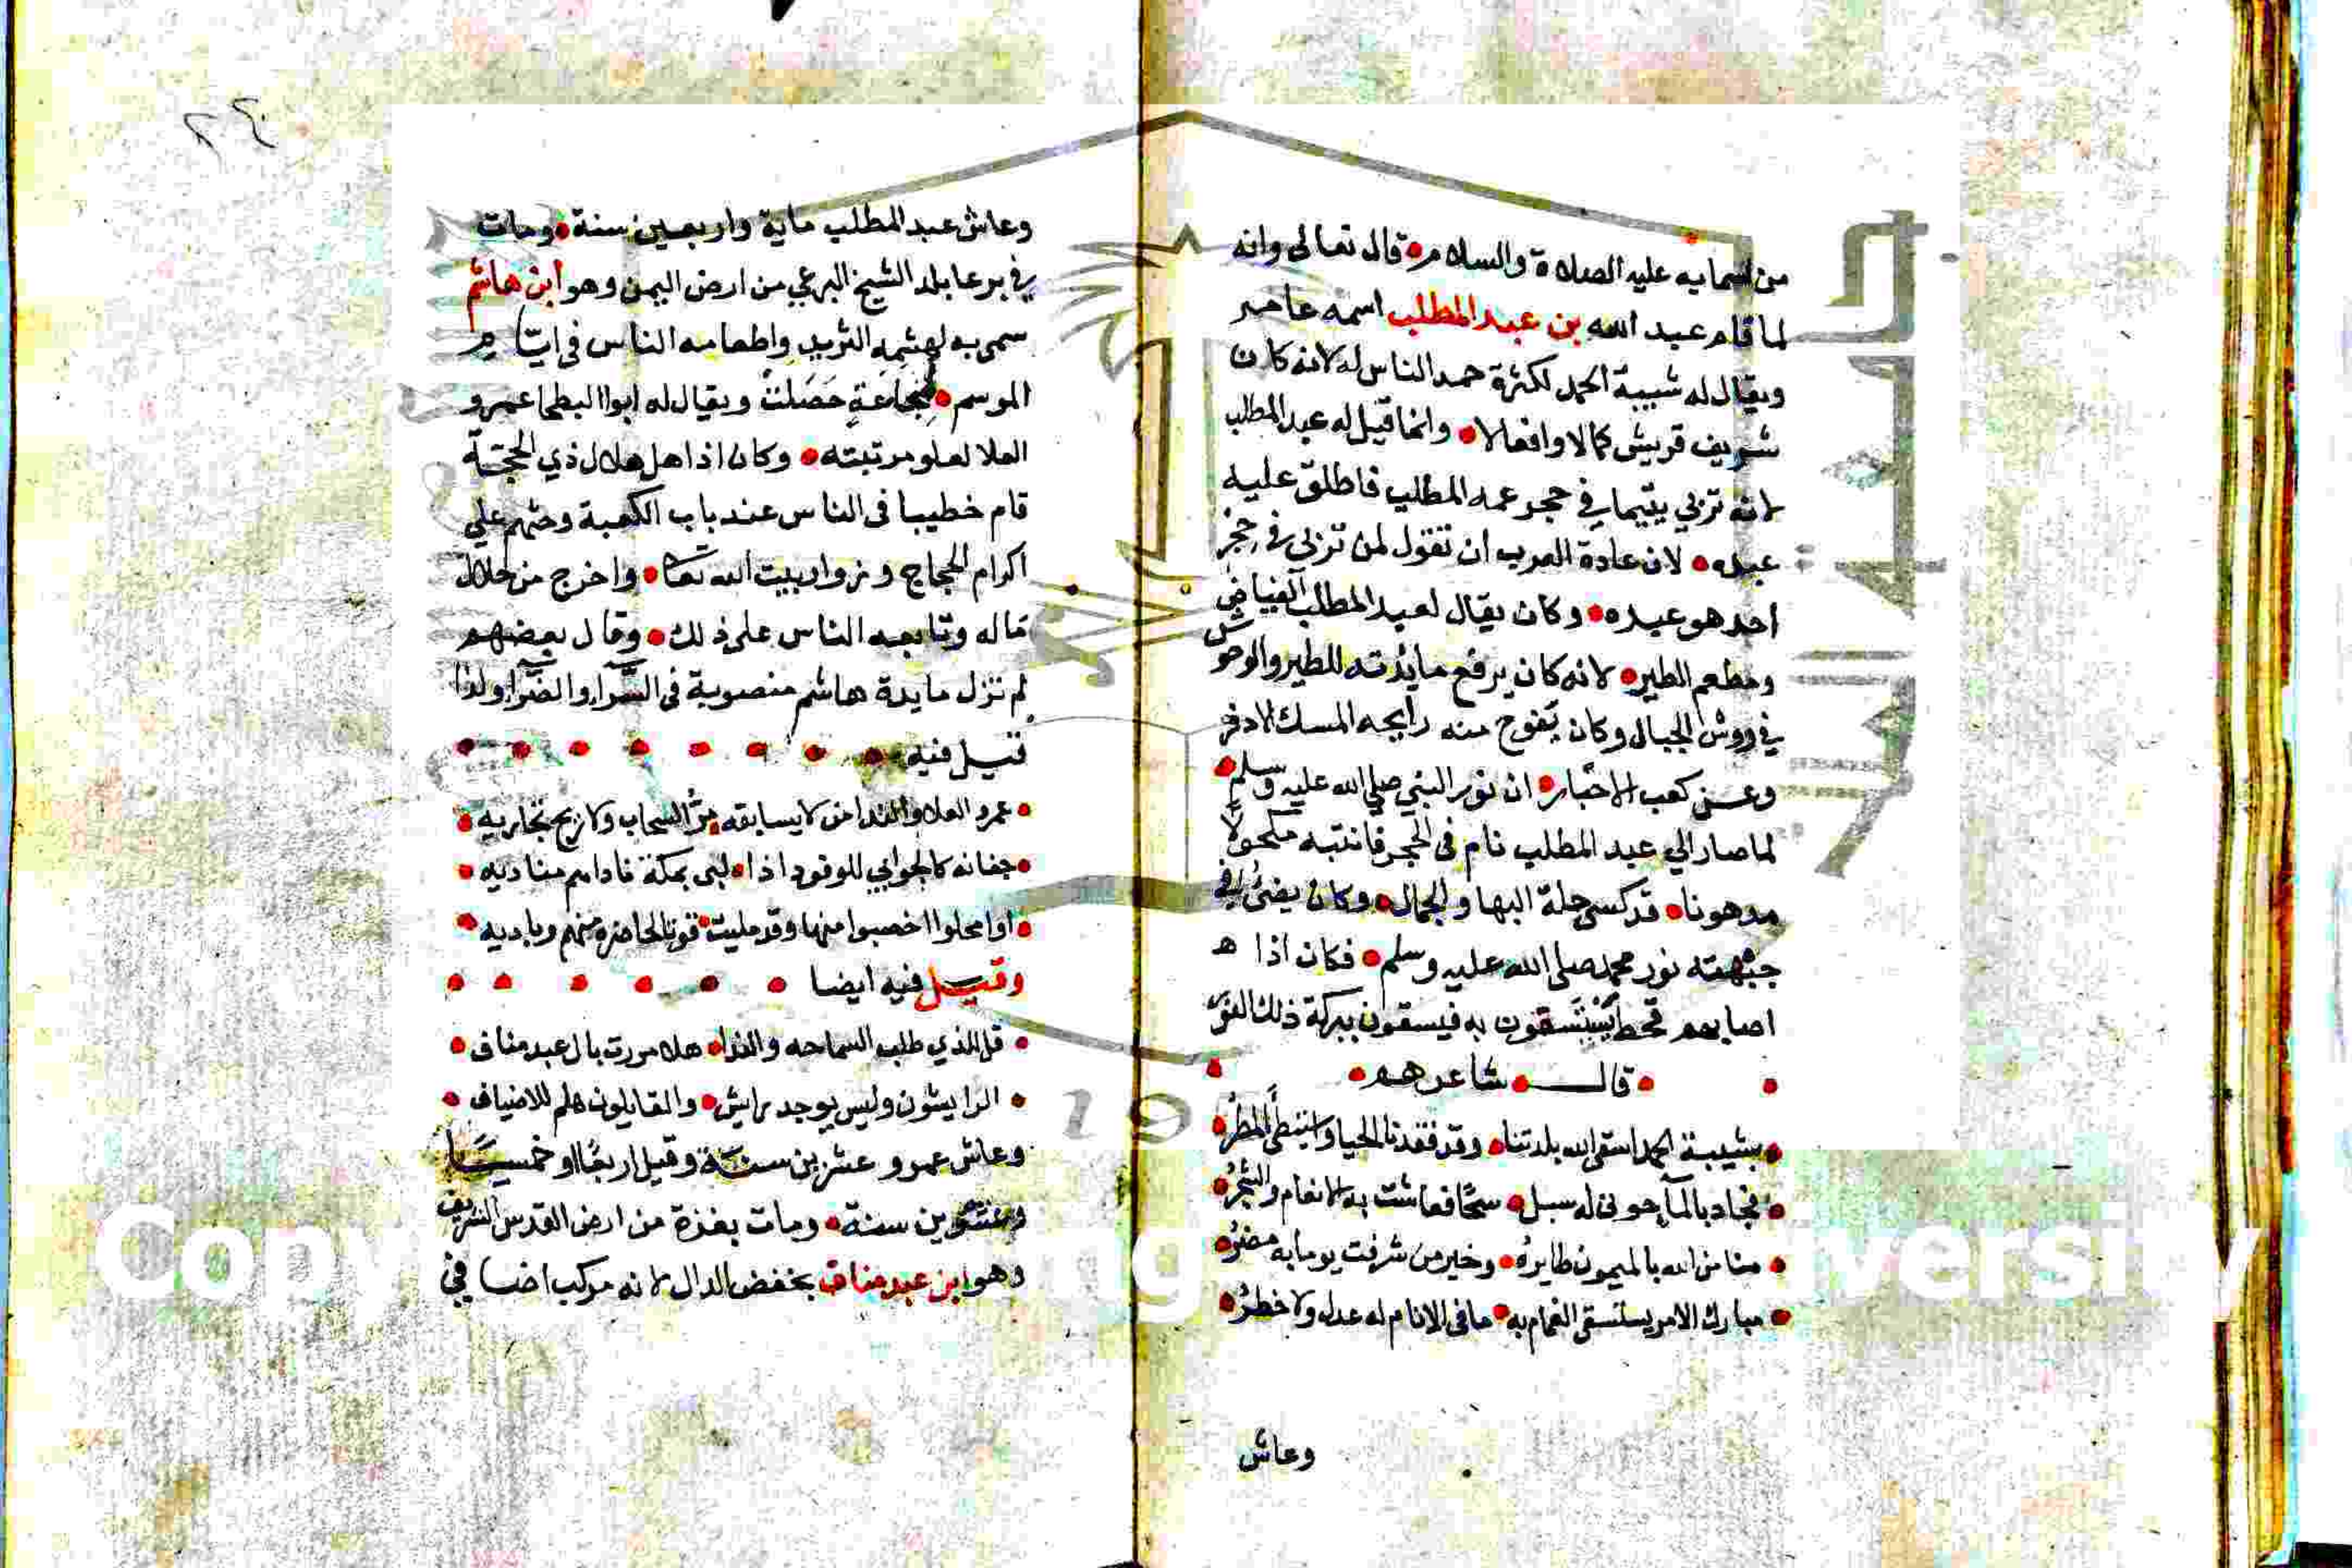 من اسمايه عليه الصلاة والسلام قال تعالى وانه
لما قام عبد الله بن عبد المطلب اسمه عامر
ويقال له شيبة الحمد لكثرة حمد الناس له لانه كان
شريف قريش كمالا وافعالا وانما قيل له عبد المطلب
لانه تربي يتيما في حجر عمه المطلب فاطلق عليه
عبده لان عادة العرب ان تقول لمن تربي في حجر
احد هو عبده وكان يقال لعبد المطلب الفياض
ومطعم الطير لانه كان يرفع مايدته للطير والوحوش
في روش الجبال وكان يفوح منه رايحه المسك الادفر
وعن كعب الاحبار ان نور النبي صلي الله عليه وسلم
لما صار الي عبد المطلب نام في الحجر فانتبه مكحولا
مدهونا قد كسي حلة البها والجمال وكان يضئ في
جبهته نور محمد صلى الله عليه وسلم فكان اذا
اصابهم قحط يستسقون به فيسقون ببركة ذلك النور
قال شاعرهم
بشيبة الحمد اسقى الله بلدتنا وقد فقدنا الحيا واستبطئ المطر
فجاد بالمآ جوني له سبل سحا فعاشت به الانعام والشجر
منا من الله بالميمون طايره وخير من شرفت يوما به مضر
مبارك الامر يستسقي الغمام به ما في الانام له عدل ولا خطر
وعاش
٢٤
وعاش عبد المطلب ماية واربعين سنة ومات
في برعا بلد الشيخ البرعي من ارض اليمن وهو ابن هاشم
سمي به لهشمه الثريد واطعامه الناس في ايام
الموسم لمجاعة حصلت ويقال له ابوا البطحا عمرو
العلا لعلو مرتبته وكان اذا هل هلال ذي الحجة
قام خطيبا في الناس عند باب الكعبة وحثهم علي
اكرام الحجاج وزوار بيت الله تعا واخرج من حلال
ماله وتابعه الناس على ذلك وقال بعضهم
لم تزل مايدة هاشم منصوبة في السرا والضرا ولذا
قيل فيه
عمرو العلا والندا من لا يسابقه مر السحاب ولا ريح تجاريه
جفانه كالجوابي للوفود اذا لبى بمكة ناداهم مناديه
او امحلوا اخصبوا منها وقد مليت قوتا لحاضره منهم وباديه
وقيل فيه ايضا
قل للذي طلب السماحه والندا هلا مررت بال عبد مناف
الرايشون وليس يوجد رايش والقايلون هلم للاضياف
وعاش عمرو عشرين سنة وقيل اربعا او خمسا
وعشرين سنة ومات بغزة من ارض القدس الشريف
وهو ابن عبد مناف بخفض الدال لانه مركب اضافي